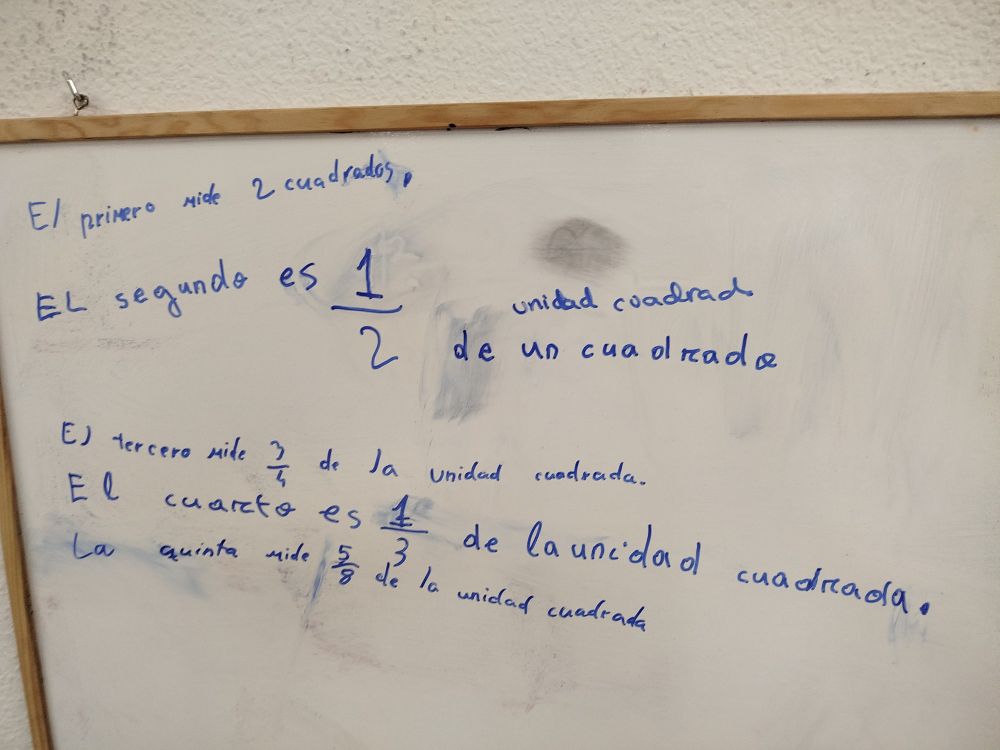 El primero mide 2 cuadrados.
EL segundo es 1/2 de un cuadrado
unidad cuadrad
El tercero mide 3/4 de la unidad cuadrada.
El cuarto es 1/3 de la unidad cuadrada.
La quinta mide 5/8 de la unidad cuadrada